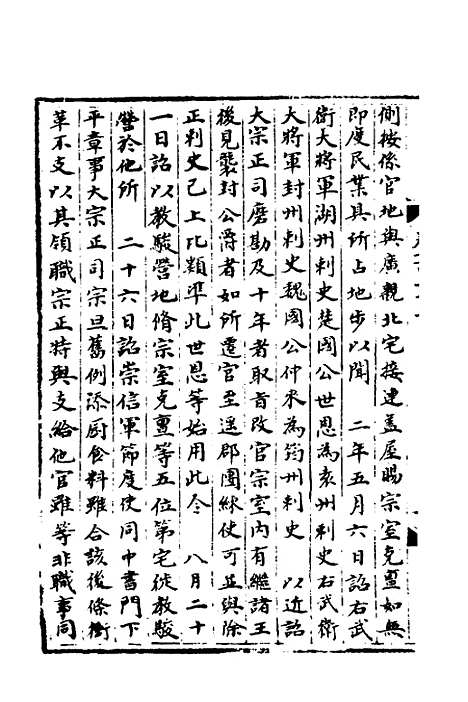 側按係官地與廣觀北宅接連蓋屋賜宗室克亶如無
即度民業具所占地步以聞　二年五月六日詔右武
衛大將軍湖州刺史楚國公世恩為袁州刺史右武衛
大將軍封州刺史魏國公仲來為筠州刺史　以近詔
大宗正司磨勘及十年者取旨改官宗室內有繼諸王
後見襲封公爵者如所遷官至遥郡團練使可並與除
正刺史已上比類準此世恩等始用此令　八月二十
一日詔以教駿營地脩宗室克亶等五位第宅徙教駿
營於他所　二十六日詔崇信軍節度使同中書門下
平章事大宗正司宗旦舊例添厨食料雖合該後條衝
革不支以其領職宗正特與支給他官雖等非職事同